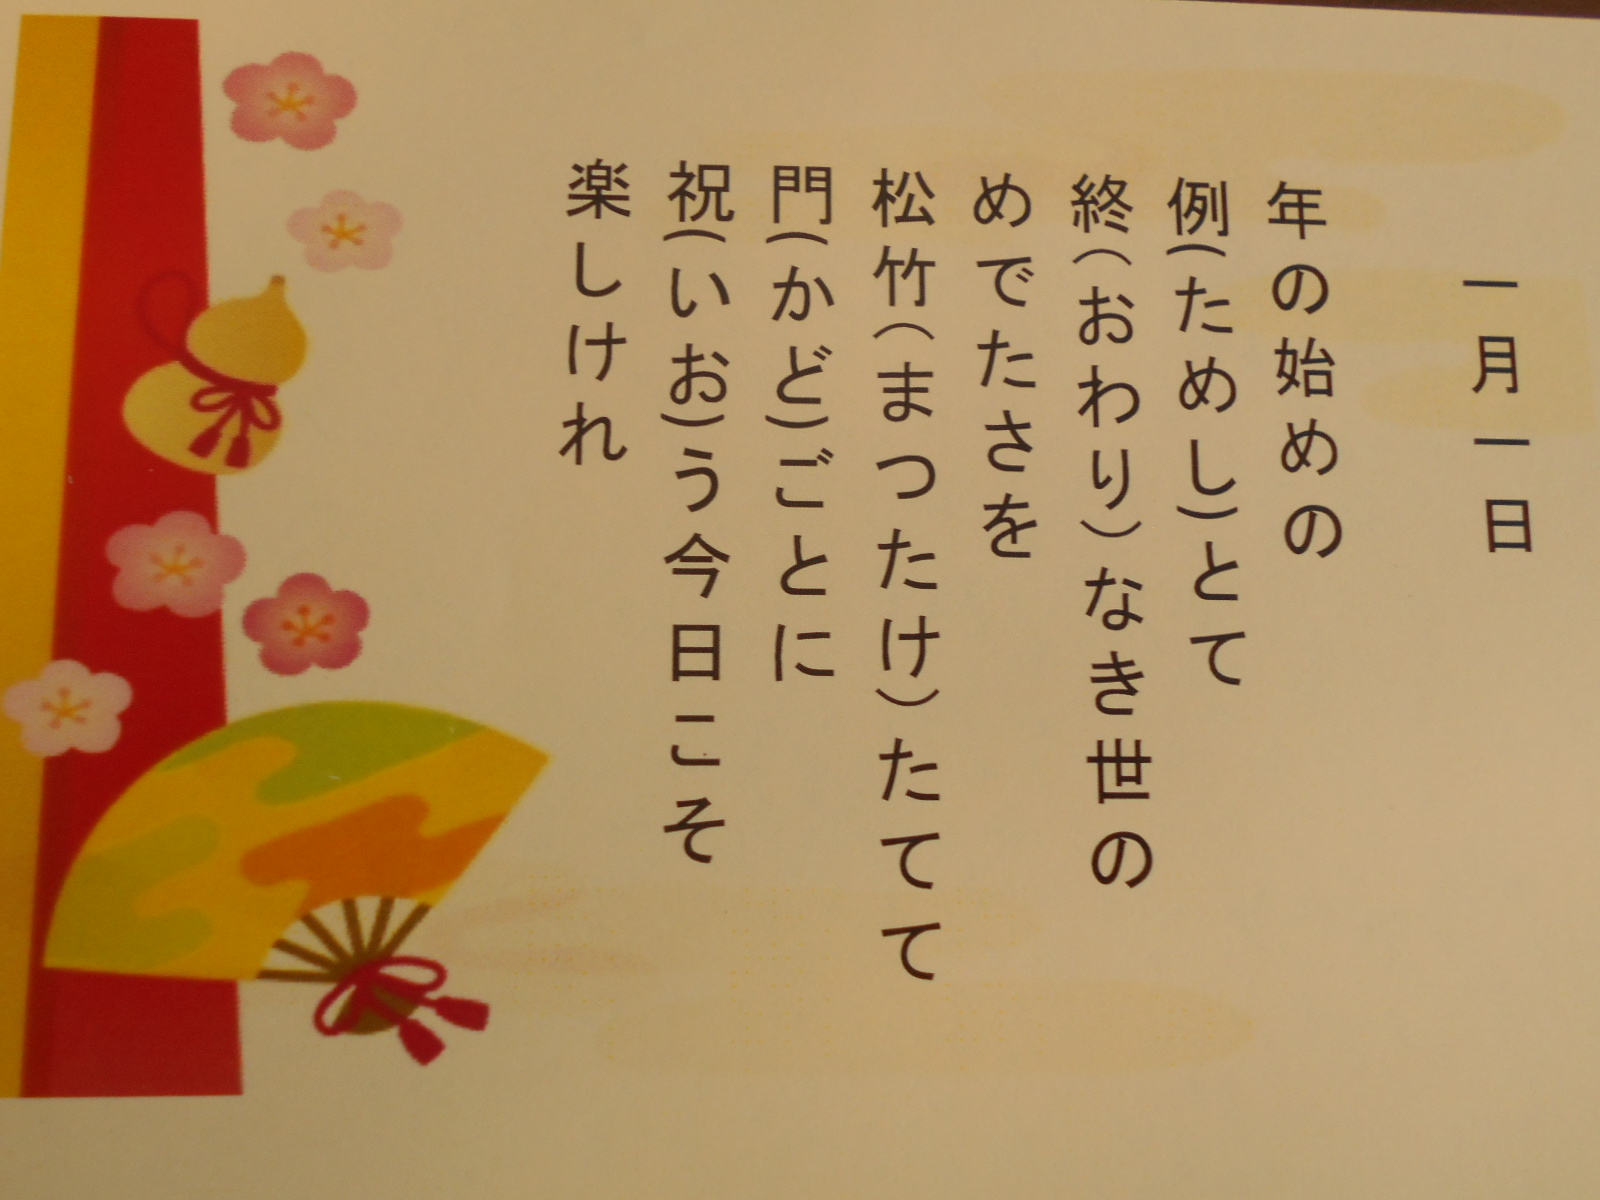 一月一日
年の始めの
例(ためし)とて
終(おわり)なき世の
めでたさを
松竹(まつたけ)たてて
門(かど)ごとに
祝(いお)う今日こそ
楽しけれ